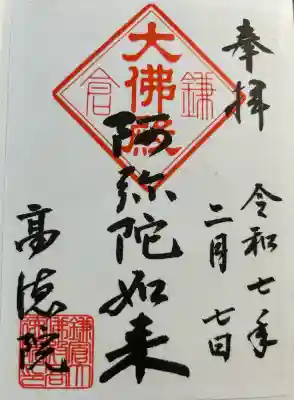 奉拝
令和七年
二月七日
鎌倉
大佛殿
阿弥陀如来
高徳院